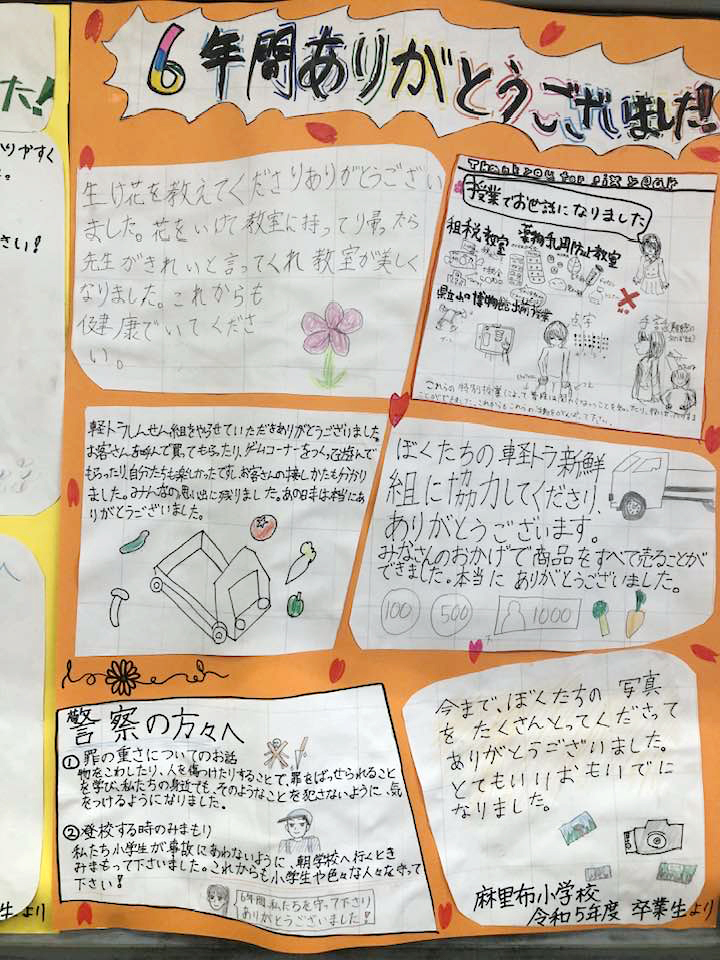 6年間ありがとうございました!
た!
りやすく
。
さい!
生け花を教えてくださりありがとうござい
ました。花をいけて教室に持って帰ったら
先生がきれいと言ってくれ教室が美しく
なりました。これからも
健康でいてくださ
い。
Thank you for six year
授業でお世話になりました
租税教室
薬物乱用防止教室
博物館出前授業
点字
手話
軽トラしんせん組をやらせていただきありがとうございました。
お客さんを呼んで買てもらったり、ゲームコーナーをつくって遊んで
もらったり、自分たちも楽しかったです。お客さんの接しかたも分かり
ました。みんなの思い出に残りました。あの日は本当にあ
りがとうございました。
ぼくたちの軽トラ新鮮
組に協力してくださり、
ありがとうございます。
みなさんのおかげで商品をすべて売ることが
できました。本当にありがとうございました。
100
500
1000
警察の方々へ
①罪の重さについてのお話
物をこわしたり、人を傷つけたりすることで、罪をばっせられること
を学び、私たちの身近でも、そのようなことを犯さないように、気
をつけるようになりました。
②登校する時のみまもり
私たち小学生が事故にあわないように、朝学校へ行くとき
みまもって下さいました。これからも小学生や色々な人々を守って
下さい!
6年間私たちを守って下さり
ありがとうございました!
今まで、ぼくたちの写真
をたくさんとってくださって
ありがとうございました。
とてもいいおもいでに
なりました。
麻里布小学校
令和5年度 卒業生より
生より